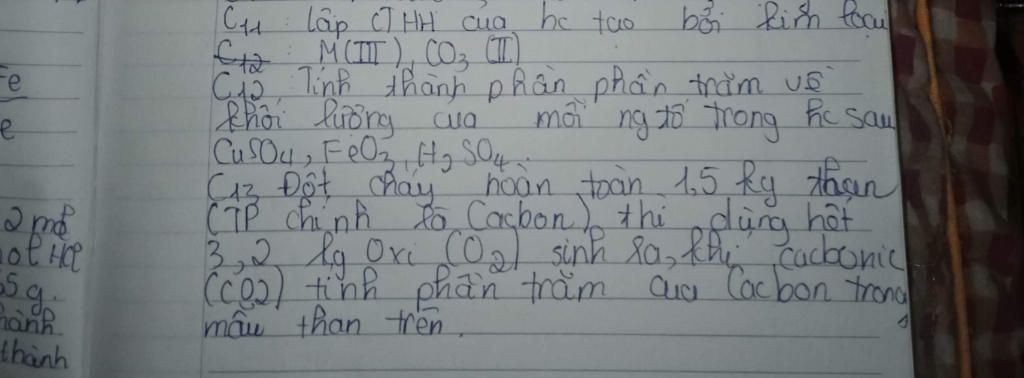 C11 : lập CTHH của hc tạo bởi kim loại
C12 : M(III), CO3 (II)
Fe
C12 Tính thành phần phần trăm về
e
khối lượng của mỗi ng tố trong hc sau
CuSO4, FeO3, H2SO4.
C13 Đốt cháy hoàn toàn 1,5 kg than
(TP chính là Cacbon) thì dùng hết
3,2 kg Oxi (O2) sinh ra khí cacbonic
(CO2) tính phần trăm của Cacbon trong
5g.
mẫu than trên.
hành
thành